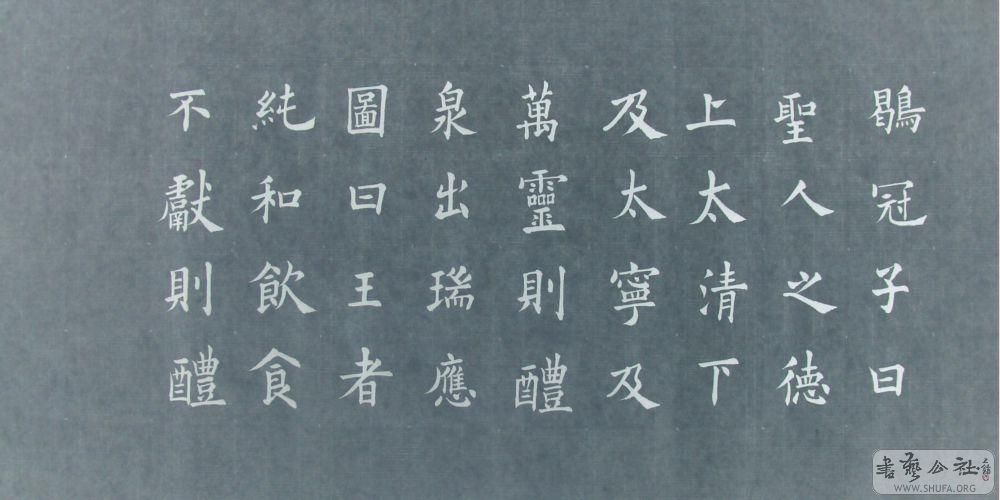 鶡冠子曰
聖人之德
上太清下
及太寧及
萬靈則醴
泉出瑞應
圖曰王者
純和飲食
不獻則醴
書藝公社
WWW.SHUFA.ORG